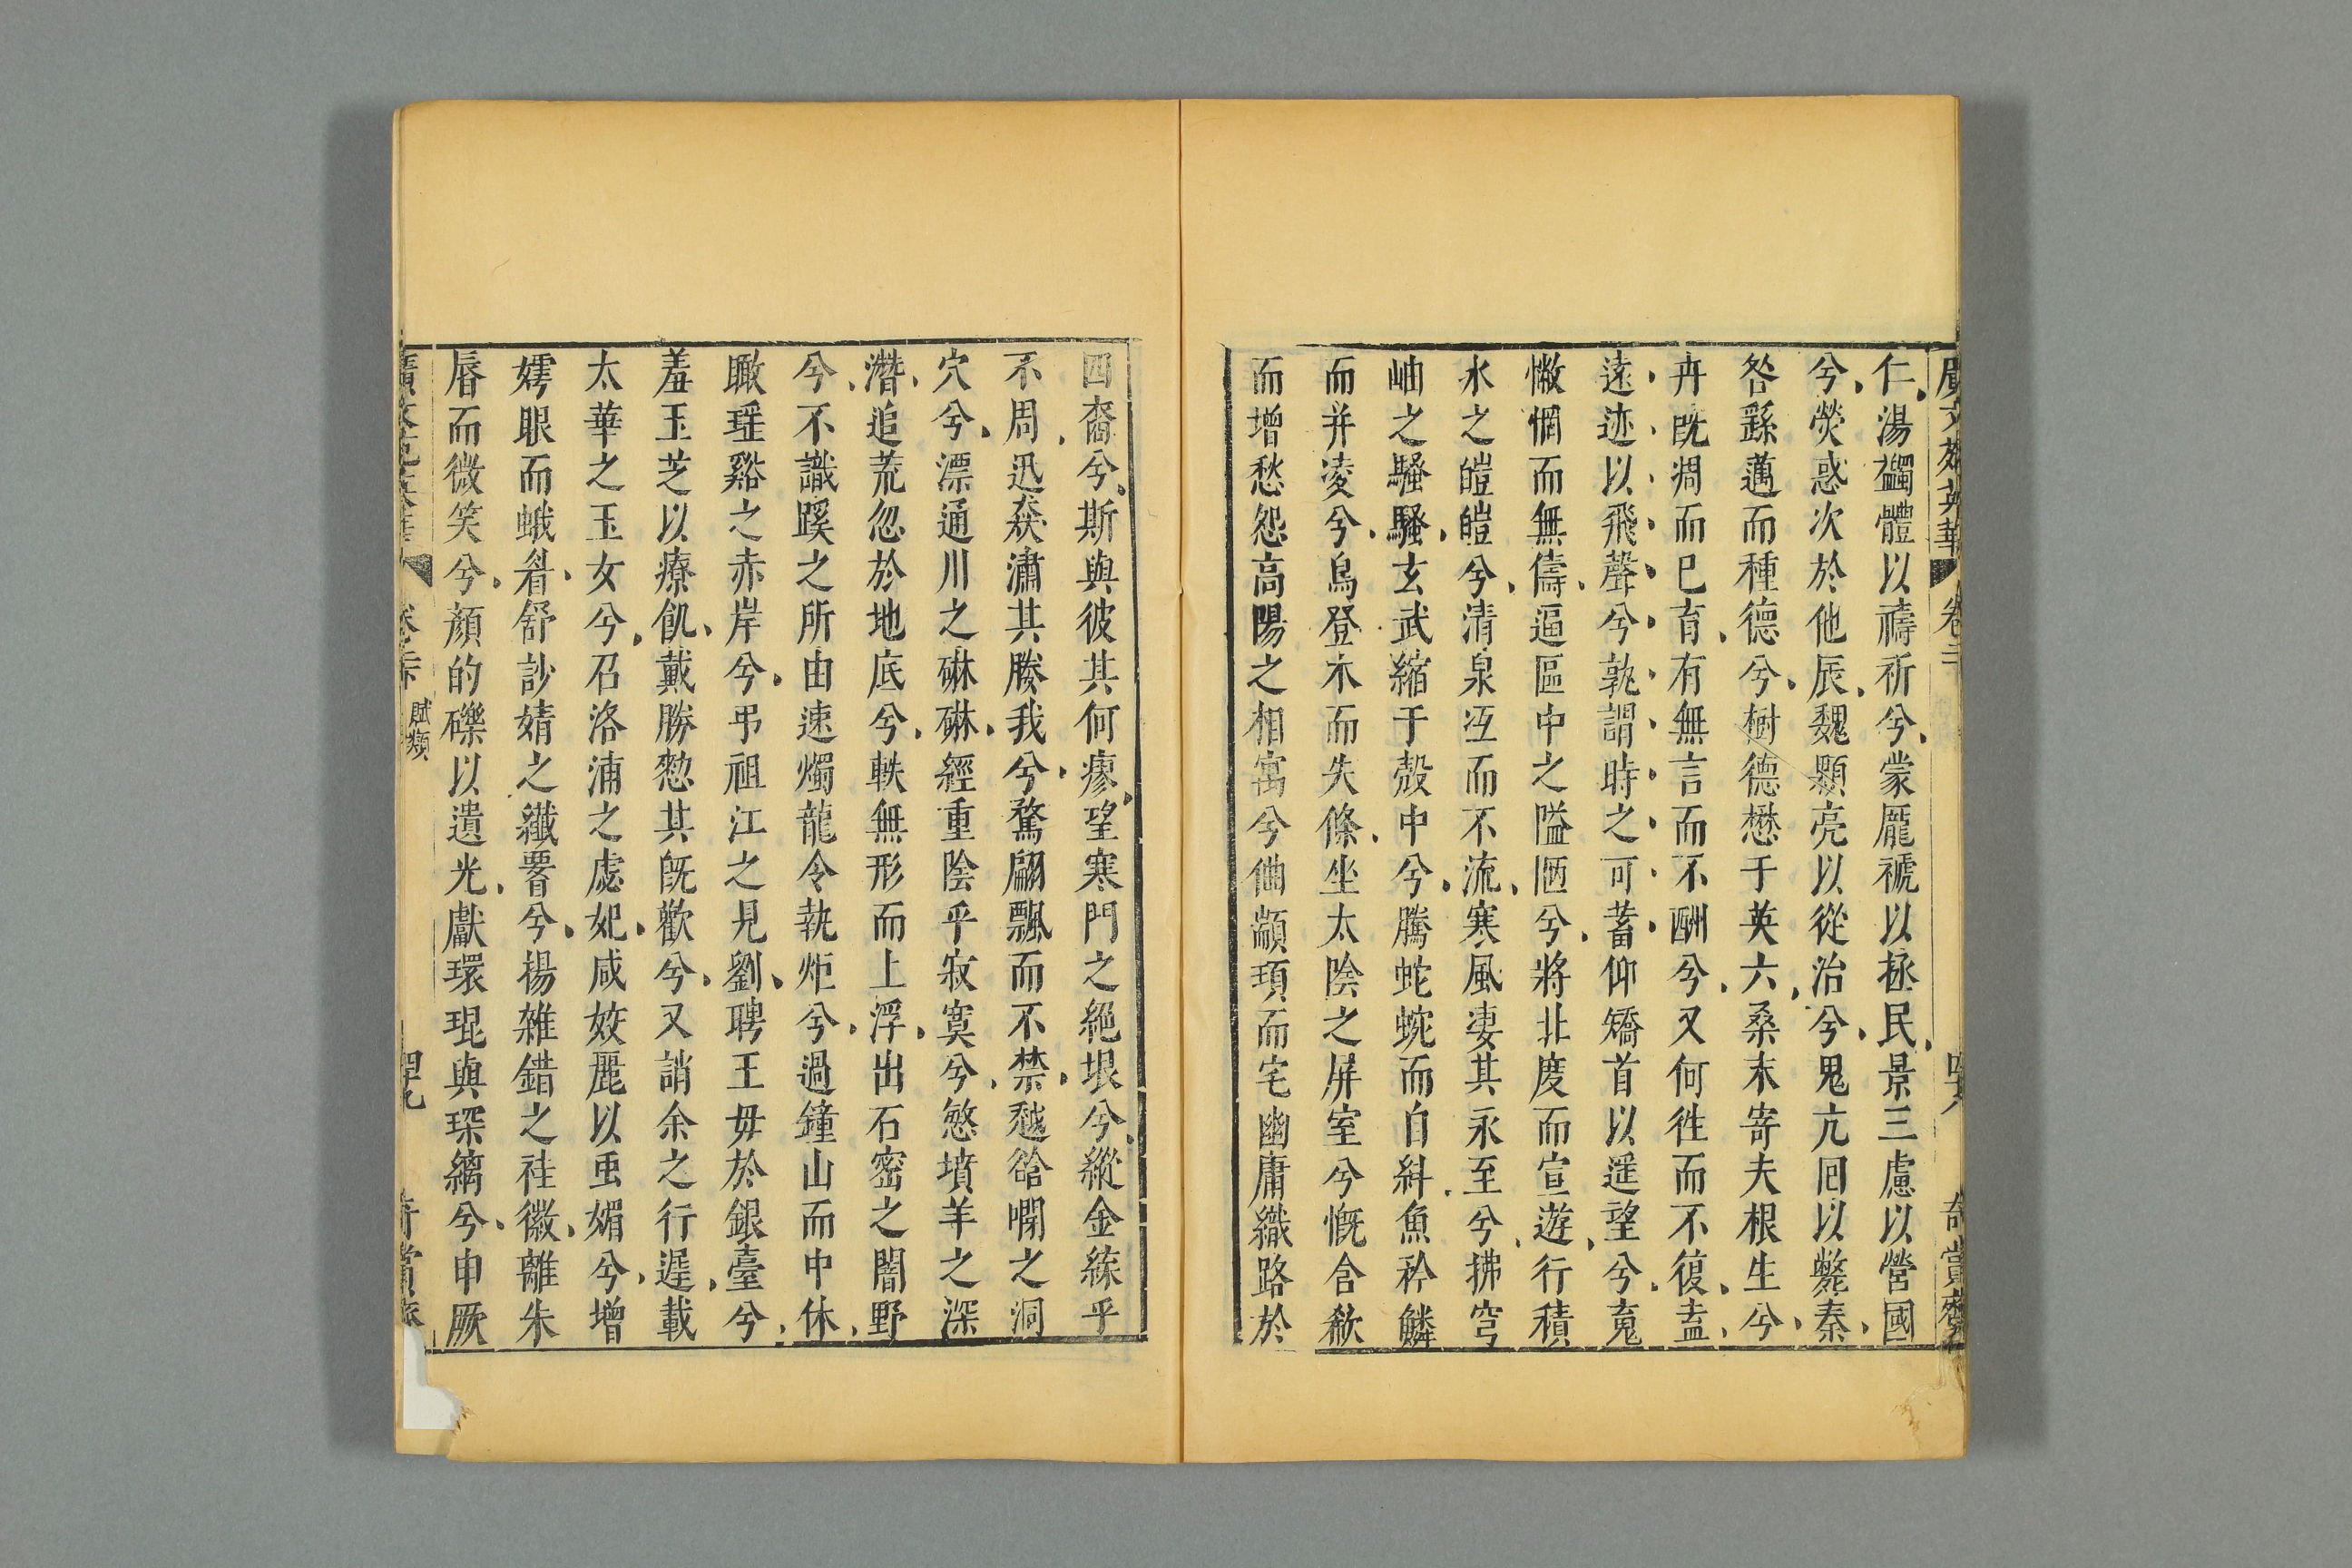 廣文苑英華 卷二十 四八 奇賞齋
仁湯蠲體以禱祈兮蒙厖禠以拯民景三慮以營國
兮熒惑次於他辰魏顆亮以從治兮鬼亢囘以斃秦
咎繇邁而種德兮樹德懋于英六桑末寄夫根生兮
卉既凋而已育有無言而不酬兮又何徃而不復盍
遠迹以飛聲兮孰謂時之可蓄仰矯首以遥望兮䰟
憿惘而無儔逼區中之隘陋兮將北度而宣遊行積
氷之皚皚兮清泉沍而不流寒風凄其永至兮拂穹
岫之騷騷玄武縮于殻中兮騰蛇蜿而自糾魚矜鱗
而并凌兮鳥登木而失條坐太陰之屏室兮慨含欷
而增愁怨高陽之相寓兮㑋顓頊而宅幽庸織路於
四裔兮斯與彼其何瘳望寒門之絕垠兮縱余緤乎
不周迅猋潚其媵我兮騖翩飄而不禁趆谽㗿之洞
穴兮漂通川之碄碄經重陰乎寂寞兮慜墳羊之深
潛追荒忽於地底兮軼無形而上浮出石密之闇野
兮不識蹊之所由速燭龍令執炬兮過鐘山而中休
瞰瑶谿之赤岸兮弔祖江之見劉聘王母於銀臺兮
羞玉芝以療飢戴勝憖其既歡兮又誚余之行遲載
太華之玉女兮召洛浦之處妃咸姣麗以蛊媚兮增
嫮眼而蛾眉舒訬婧之纎𦝫兮揚雜錯之袿徽離朱
唇而微笑兮顏的礫以遺光獻環琨與琛縭兮申厥
廣文苑英華 卷二十 賦類 四九 奇賞齋